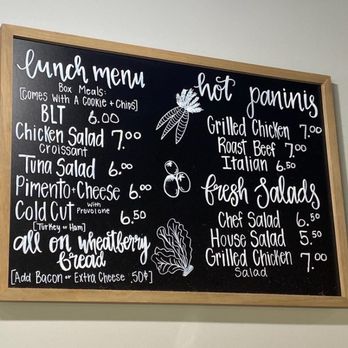 lunch menu
Box Meals:
[Comes With A Cookie + Chips]
BLT 6.00
Chicken Salad 7.00
Croissant
Tuna Salad 6.00
Pimento + Cheese 6.00
Cold Cut with Provolone 6.50
[Turkey or Ham]
all on wheatberry
bread
[Add Bacon or Extra Cheese .50¢]
hot paninis
Grilled Chicken 7.00
Roast Beef 7.00
Italian 6.50
fresh Salads
Chef Salad 6.50
House Salad 5.50
Grilled Chicken 7.00
Salad